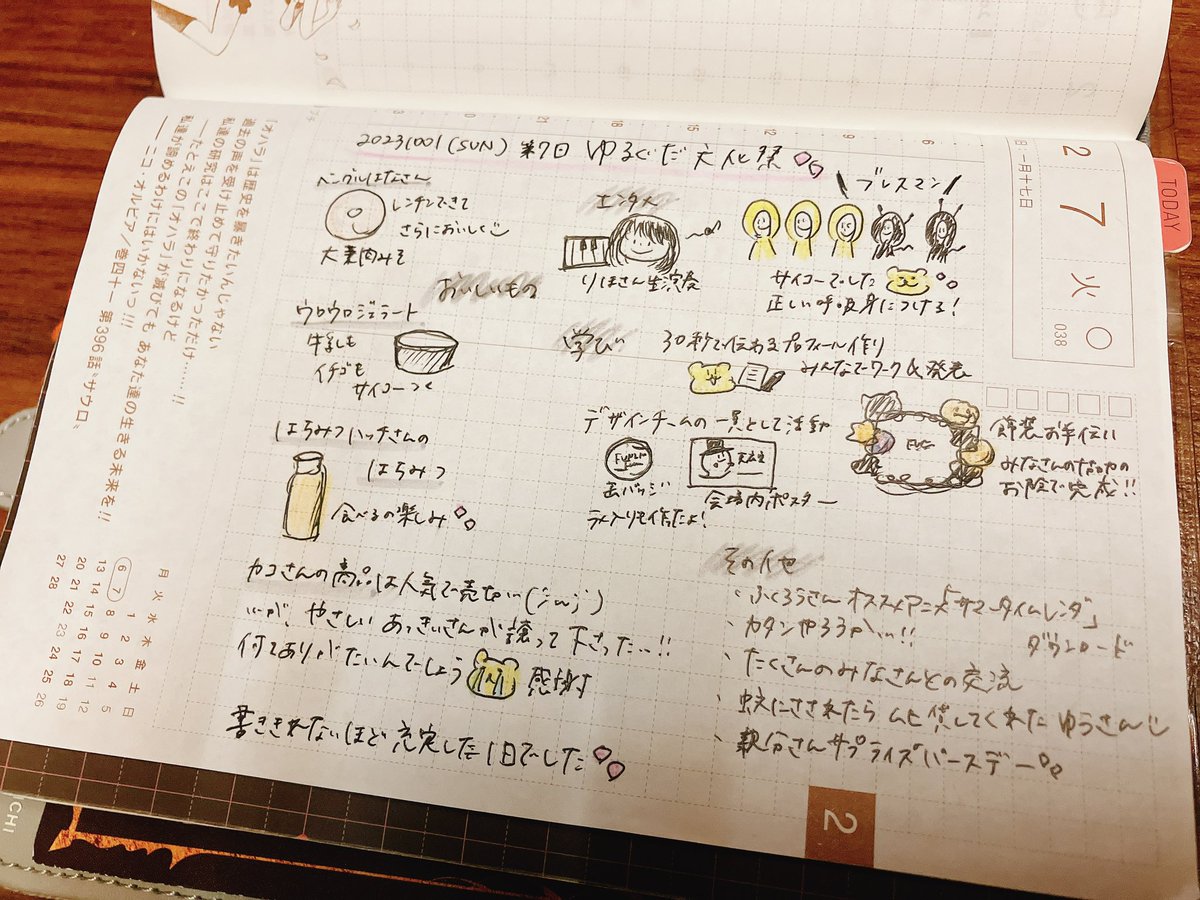 20231001 (SUN) 第7回 ゆるぐだ文化祭
ベーグルはなさん
レンチンできて
さらにおいしく
大葉肉みそ
おいしいもの
ウロウロジェラート
牛乳も
イチゴも
サイコーっく
はちみつハッチさんの
はちみつ
食べるの楽しみ
エンタメ
りほさん生演奏
\ ブレスマン /
サイコーでした
正しい呼吸身につける!
学び
30秒で伝わるプロフィール作り
みんなでワーク&発表
デザインチームの一員として活動
缶バッジ
ラメ入りも作ったよ!
会場内ポスター
飾装お手伝い
みなさんの
お陰で完成!!
カコさんの商品は人気で売切い(´;ω;`)
が、やさしいあっきぃさんが譲って下さった…!!
何てありがたいんでしょう 感謝
書ききれないほど充実した1日でした
その他
・ふくろうさんオススメアニメ「サマータイムレンダ」
ダウンロード
・カタンやろうか…!!
・たくさんのみなさんとの交流
・蚊にさされたらムヒ貸してくれたゆうさん
・親分さんサプライズバースデー
2
7
火
日・一月十七日
038
TODAY
「オハラ」は歴史を暴きたいんじゃない
過去の声を受け止めて守りたかっただけ……!!
私達の研究はここで終わりになるけど
――たとえこの「オハラ」が滅びても あなた達の生きる未来を!!
私達が諦めるわけにはいかないっ!!!
――ニコ・オルビア/巻四十一 第396話"サウロ"
月 火 水 木 金 土 日
1 2 3 4 5
6 7 8 9 10 11 12
13 14 15 16 17 18 19
20 21 22 23 24 25 26
27 28
2
6
9
12
15
18
21
CHI